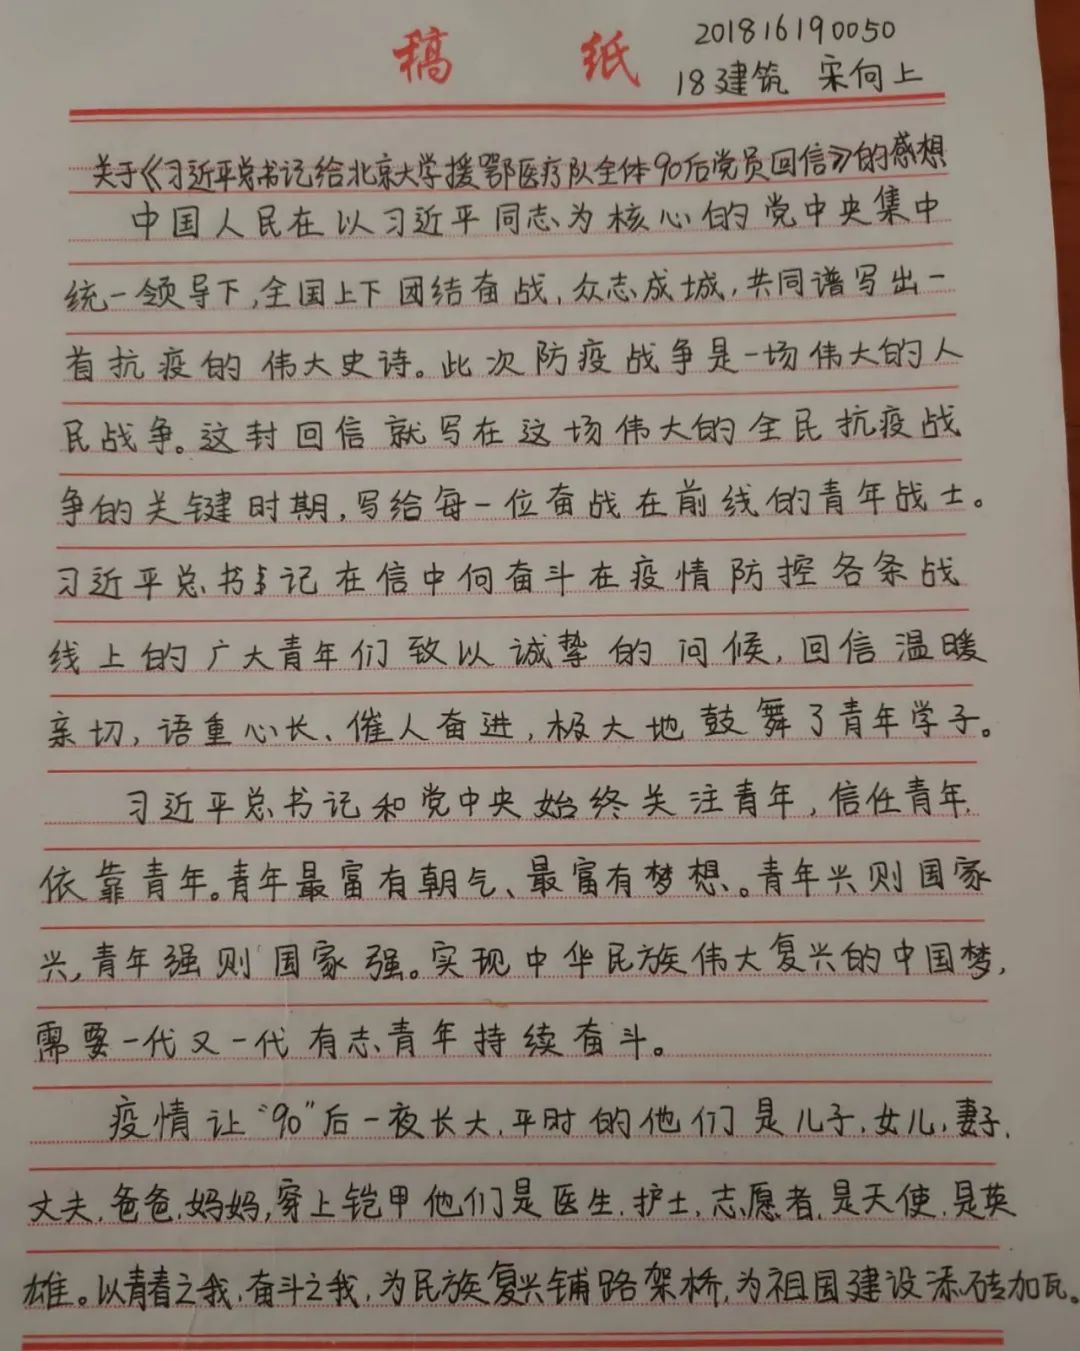 稿 纸
201816190050
18建筑 宋向上
关于《习近平总书记给北京大学援鄂医疗队全体90后党员回信》的感想
中国人民在以习近平同志为核心的党中央集中
统一领导下,全国上下团结奋战,众志成城,共同谱写出一
首抗疫的伟大史诗。此次防疫战争是一场伟大的人
民战争。这封回信就写在这场伟大的全民抗疫战
争的关键时期,写给每一位奋战在前线的青年战士。
习近平总书记在信中向奋斗在疫情防控各条战
线上的广大青年们致以诚挚的问候,回信温暖
亲切,语重心长、催人奋进,极大地鼓舞了青年学子。
习近平总书记和党中央始终关注青年,信任青年,
依靠青年。青年最富有朝气、最富有梦想。青年兴则国家
兴,青年强则国家强。实现中华民族伟大复兴的中国梦,
需要一代又一代有志青年持续奋斗。
疫情让“90”后一夜长大,平时的他们是儿子,女儿,妻子,
丈夫,爸爸,妈妈,穿上铠甲他们是医生,护士,志愿者,是天使,是英
雄。以青春之我,奋斗之我,为民族复兴铺路架桥,为祖国建设添砖加瓦。